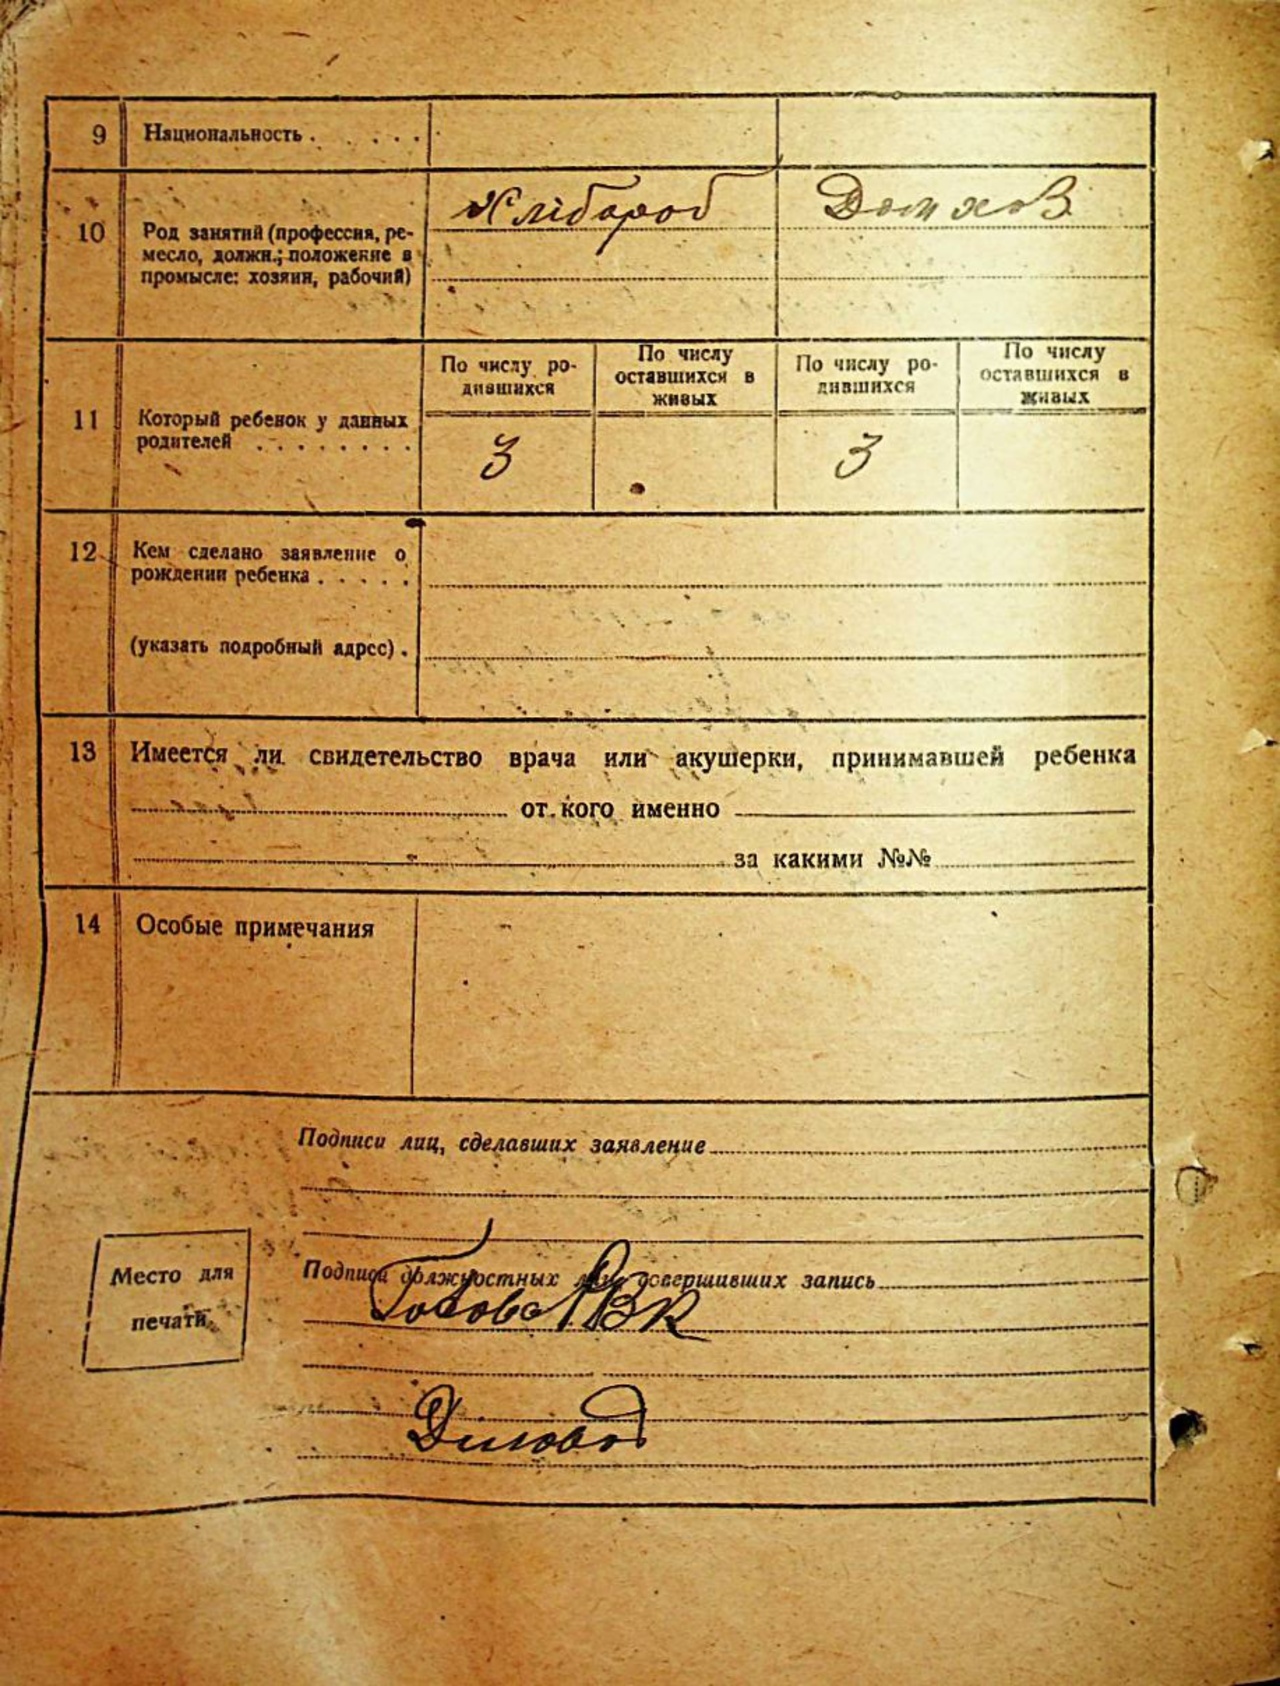 9 Национальность . . . . .
10 Род занятий (профессия, ре-
месло, должн.; положение в
промысле: хозяин, рабочий)
Хлібороб
Дом хоз
11 Который ребенок у данных
родителей . . . . . . . .
По числу ро-
дившихся
По числу
оставшихся в
живых
По числу ро-
дившихся
По числу
оставшихся в
живых
3
3
12 Кем сделано заявление о
рождении ребенка . . . . .
(указать подробный адрес) .
13 Имеется ли свидетельство врача или акушерки, принимавшей ребенка
от кого именно
за какими №№
14 Особые примечания
Подписи лиц, сделавших заявление
Подписи должностных лиц, совершивших запись
Голова РВК
Діловод
Место для
печати